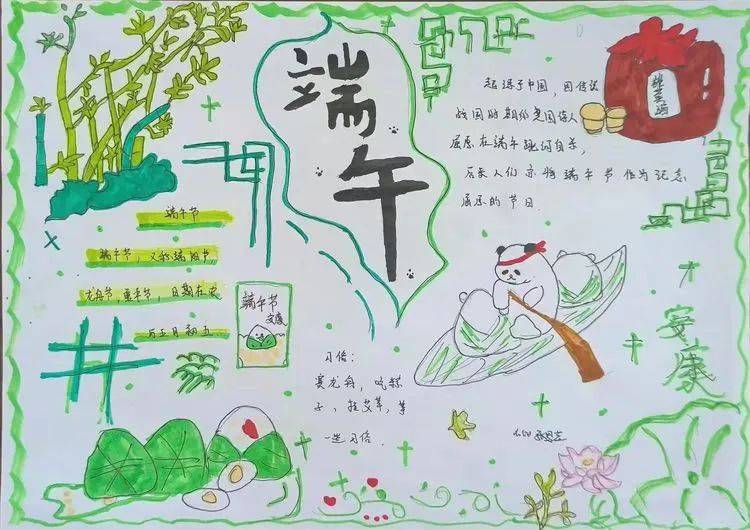 端午
端午节
端午节，又称端阳节
龙舟节、重午节，日期在农
历五月初五
端午节
安康
习俗：
赛龙舟，吃粽
子、挂艾草，等
一些习俗.
起源于中国，因传说
战国时期的楚国诗人
屈原在端午跳河自杀，
后来人们亦将端午节作为纪念
屈原的节日.
雄黄酒
安康